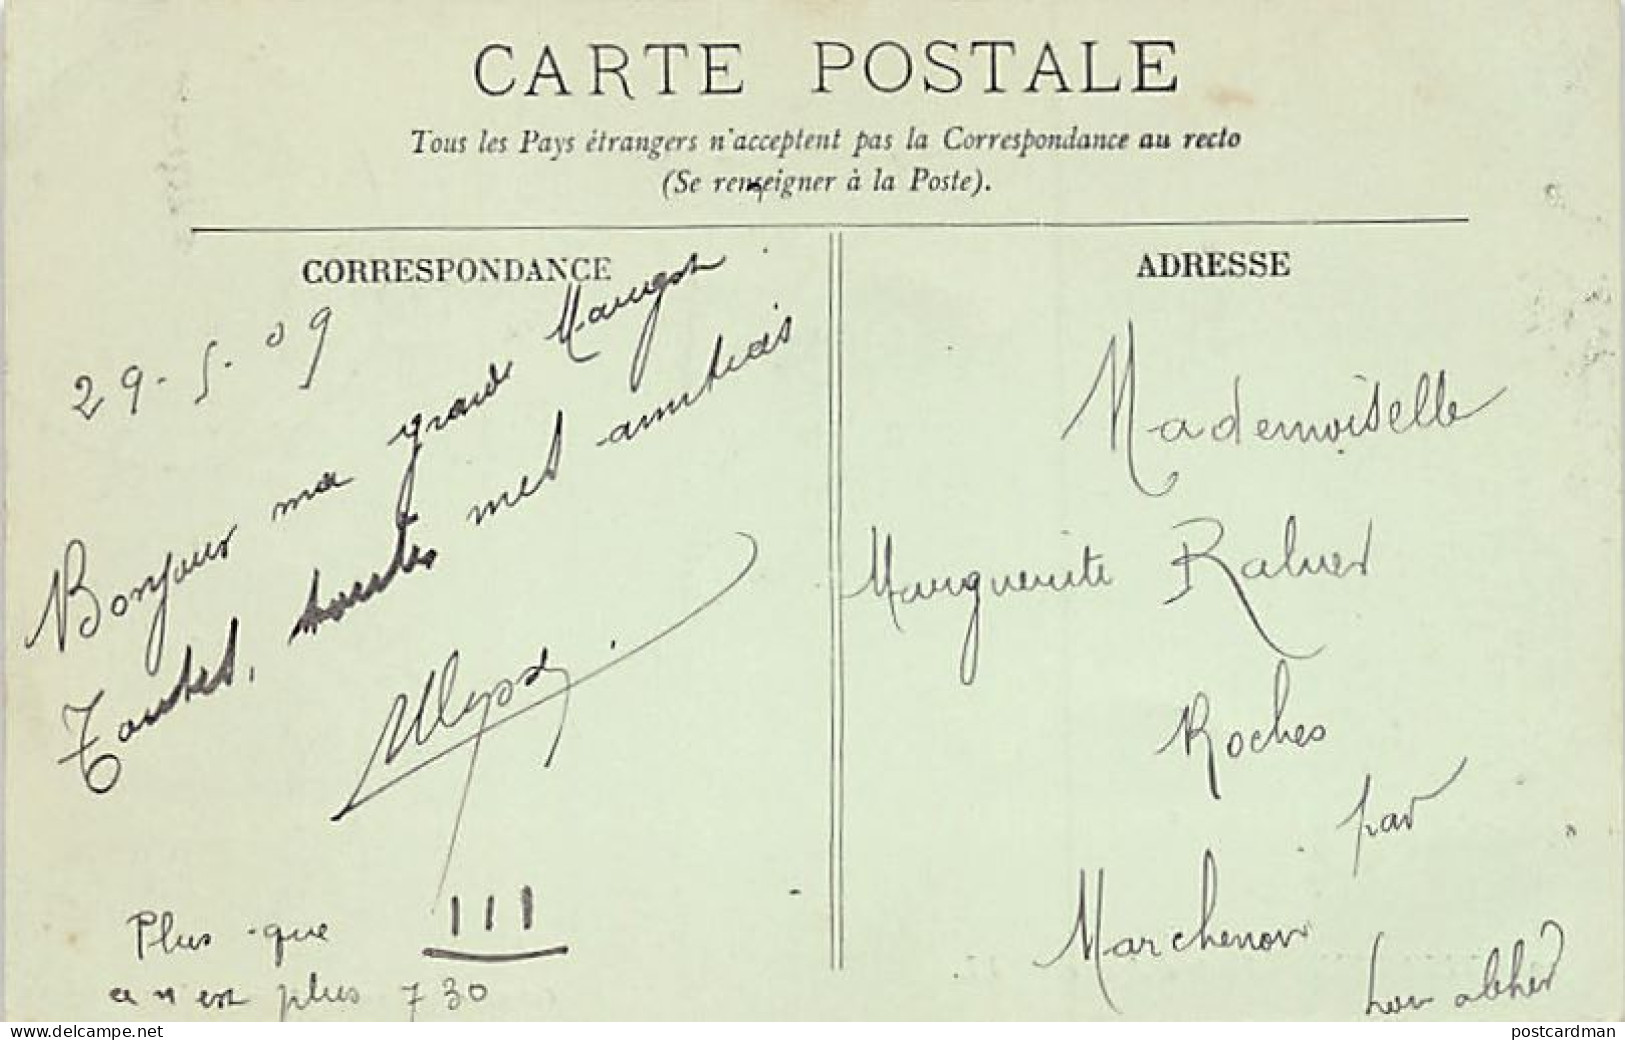 CARTE POSTALE
Tous les Pays étrangers n'acceptent pas la Correspondance au recto
(Se renseigner à la Poste).
CORRESPONDANCE
29-5-09
Bonjour ma grande Margot
Toutes, toutes mes amitiés
Ulysse
Plus que 111
ce n'est plus 730
ADRESSE
Mademoiselle
Marguerite
Roches
par
Marchenoir
Loir et Cher
delcampe.net
postcardman